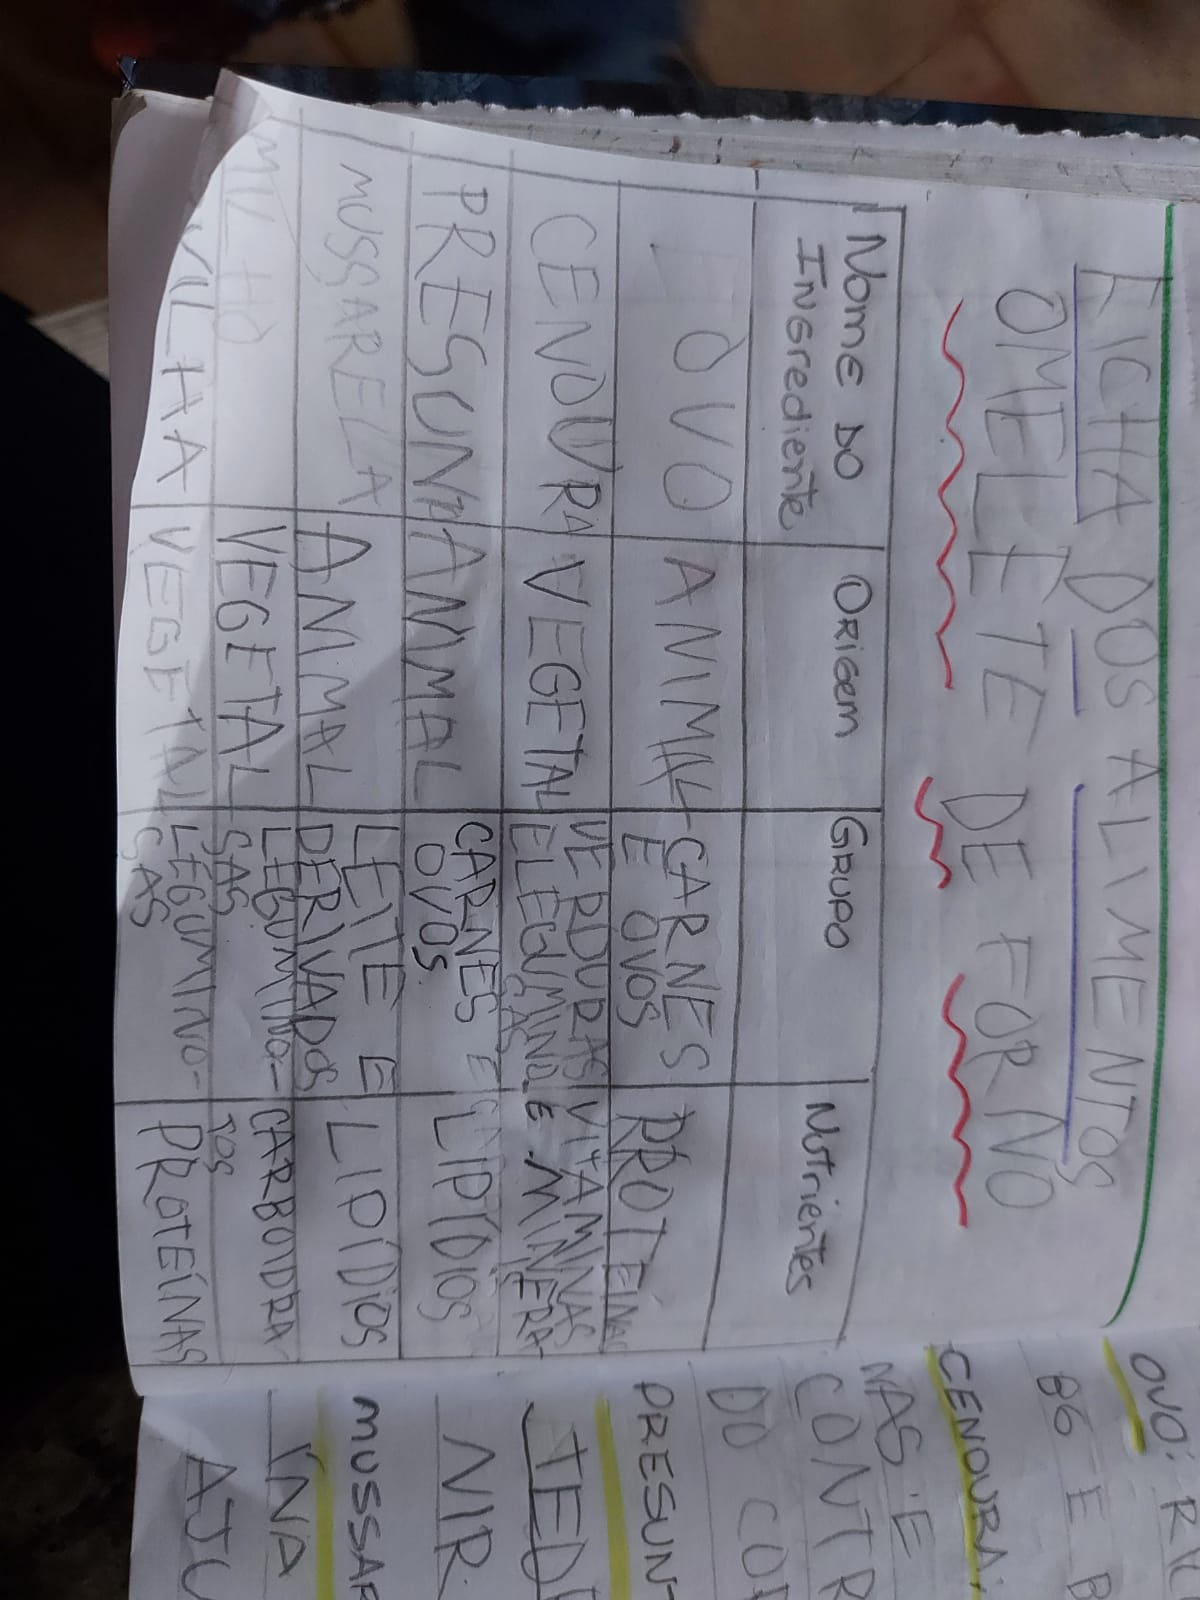 FICHA DOS ALIMENTOS
OMELETE DE FORNO
NOME DO INGREDIENTE ORIGEM GRUPO NUTRIENTES
OVO ANIMAL CARNES E OVOS PROTEÍNAS
CENOURA VEGETAL VERDURAS E LEGUMINOSAS VITAMINAS E MINERA-
PRESUN ANIMAL CARNES E OVOS LIPÍDIOS
MUSSARELA ANIMAL LEITE E DERIVADOS LIPÍDIOS
MILHO VEGETAL LEGUMINO-SAS CARBOIDRATOS
VILHA VEGETAL LEGUMINO-SAS PROTEÍNAS
OVO: RI
B6 E B
CENOURA:
NAS E
CONTR
DO COR
PRESUN-
NIR
MUSSAR
ÍNA
AJU